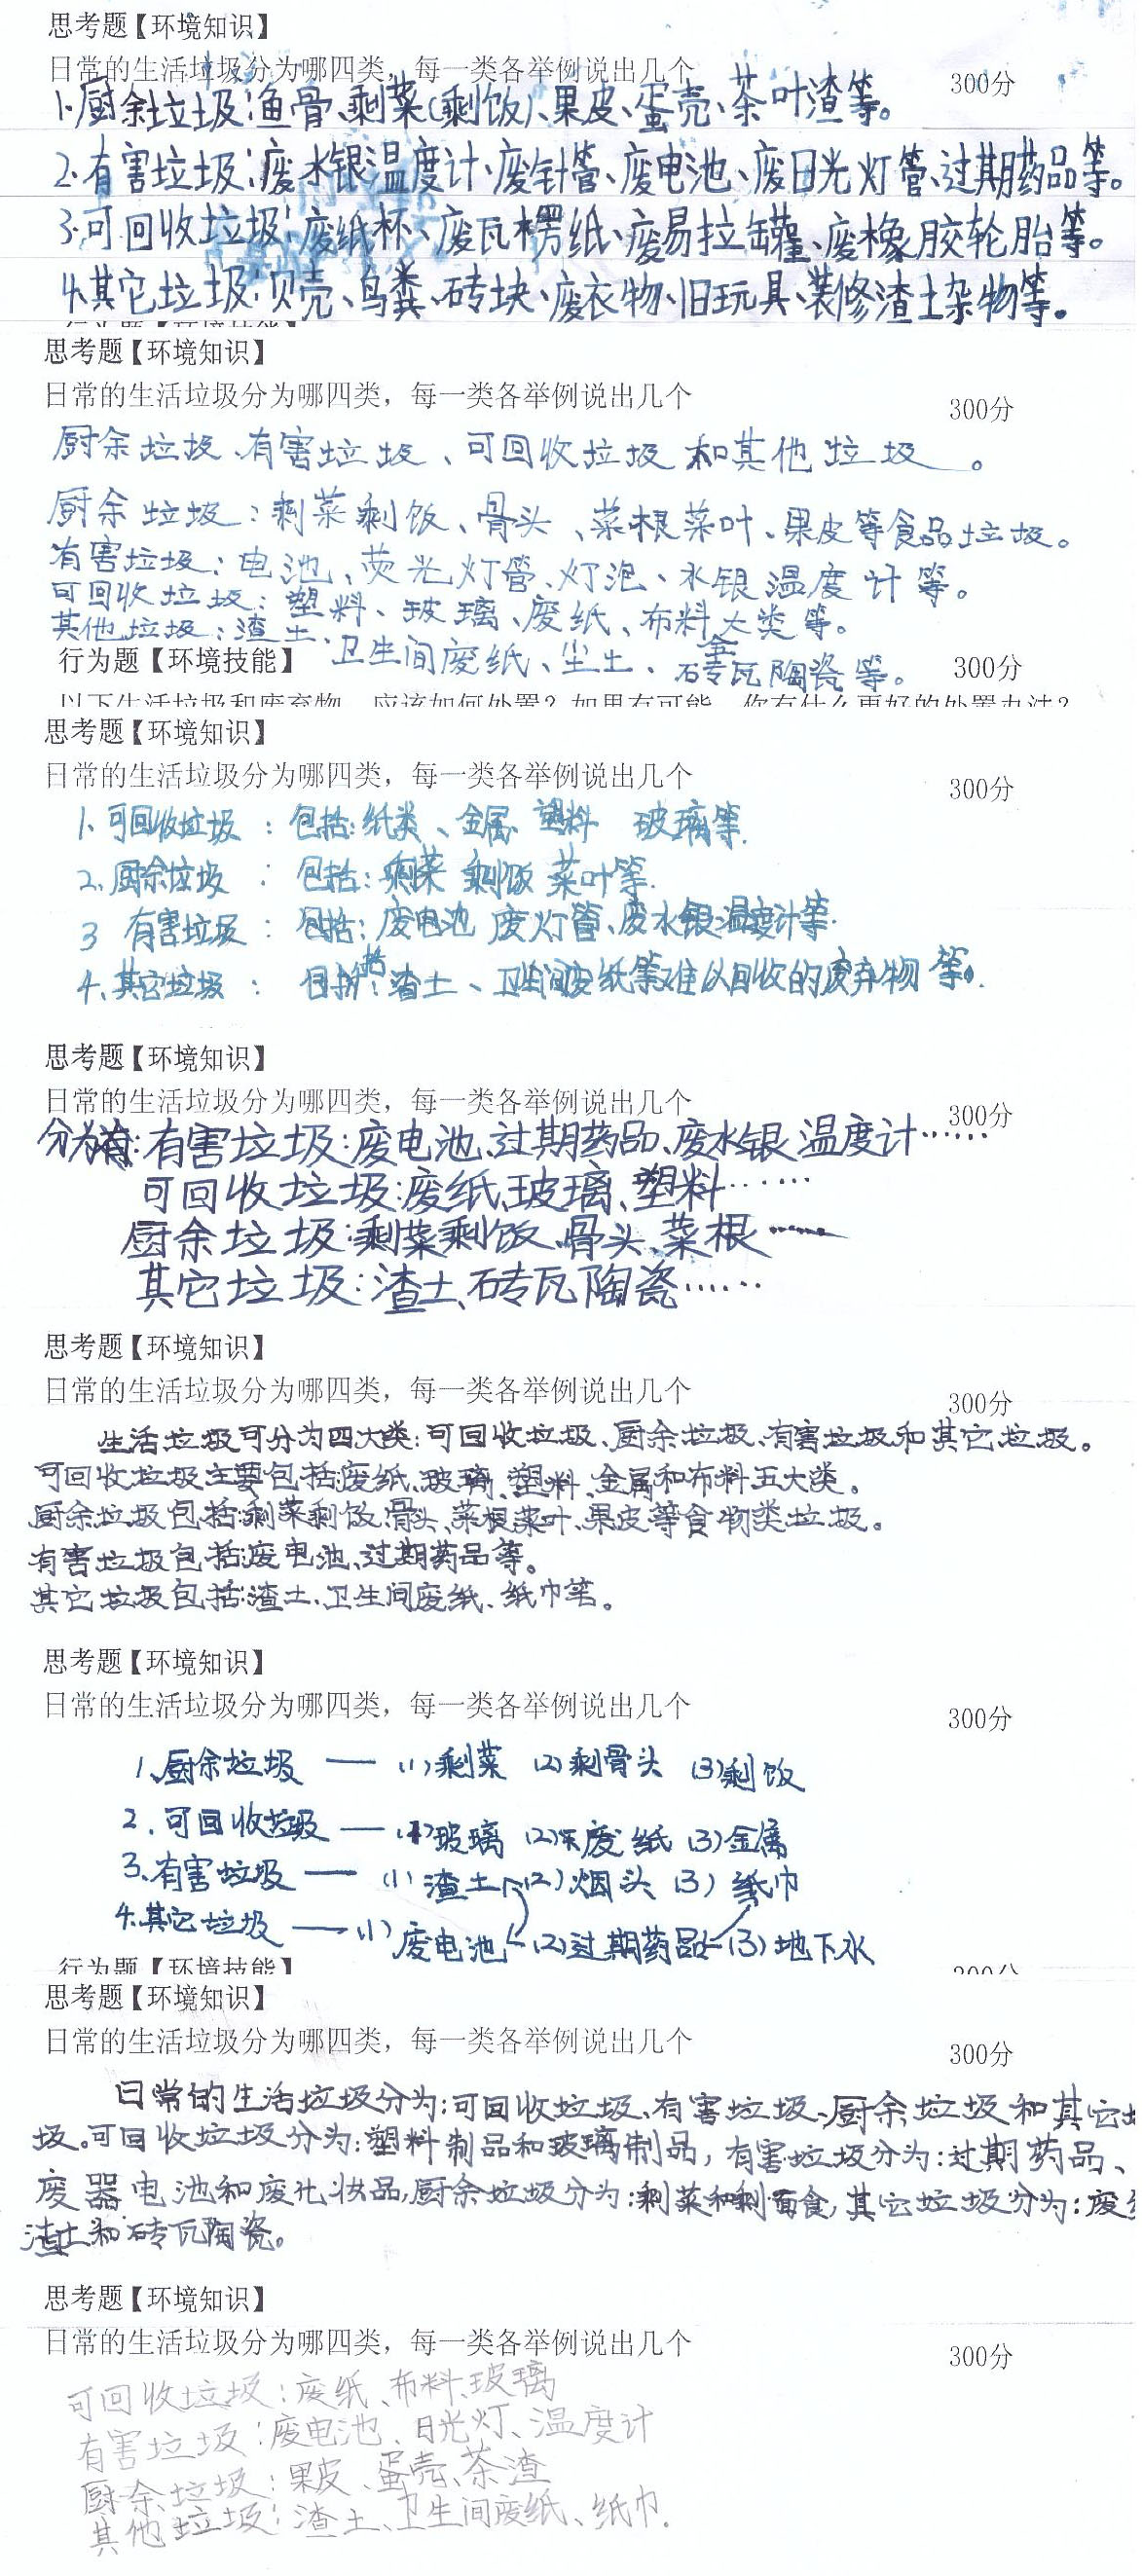 思考题【环境知识】
日常的生活垃圾分为哪四类，每一类各举例说出几个
300分
1.厨余垃圾:鱼骨、剩菜(剩饭)、果皮、蛋壳、茶叶渣等。
2.有害垃圾:废水银温度计、废针管、废电池、废日光灯管、过期药品等。
3.可回收垃圾:废纸杯、废瓦楞纸、废易拉罐、废橡胶轮胎等。
4.其它垃圾:贝壳、鸟粪、砖块、废衣物、旧玩具、装修渣土杂物等。
行为题【环境技能】
思考题【环境知识】
日常的生活垃圾分为哪四类，每一类各举例说出几个
300分
厨余垃圾、有害垃圾、可回收垃圾和其他垃圾。
厨余垃圾:剩菜剩饭、骨头、菜根菜叶、果皮等食品垃圾。
有害垃圾:电池、荧光灯管、灯泡、水银温度计等。
可回收垃圾:塑料、玻璃、废纸、布料、金大类等。
其他垃圾:渣土、卫生间废纸、尘土、砖瓦陶瓷等。
行为题【环境技能】
300分
以下生活垃圾和废弃物，应该如何处置？如果有可能，你有什么更好的处置办法？
思考题【环境知识】
日常的生活垃圾分为哪四类，每一类各举例说出几个
300分
1.可回收垃圾 : 包括:纸类、金属、塑料 玻璃等.
2.厨余垃圾 : 包括:剩菜 剩饭 菜叶等.
3 有害垃圾 : 包括:废电池 废灯管、废水银温度计等.
4.其它垃圾 : 包括:渣土、卫生间废纸等难以回收的废弃物等.
思考题【环境知识】
日常的生活垃圾分为哪四类，每一类各举例说出几个
300分
分为:有害垃圾:废电池、过期药品、废水银温度计……
可回收垃圾:废纸、玻璃、塑料……
厨余垃圾:剩菜剩饭、骨头、菜根……
其它垃圾:渣土、砖瓦陶瓷……
思考题【环境知识】
日常的生活垃圾分为哪四类，每一类各举例说出几个
300分
生活垃圾可分为四大类:可回收垃圾、厨余垃圾、有害垃圾和其它垃圾。
可回收垃圾主要包括:废纸、玻璃、塑料、金属和布料五大类。
厨余垃圾包括:剩菜剩饭、骨头、菜根菜叶、果皮等食物类垃圾。
有害垃圾包括:废电池、过期药品等。
其它垃圾包括:渣土、卫生间废纸、纸巾等。
思考题【环境知识】
日常的生活垃圾分为哪四类，每一类各举例说出几个
300分
1、厨余垃圾 — (1)剩菜 (2)剩骨头 (3)剩饭
2.可回收垃圾 — (1)玻璃 (2)废纸 (3)金属
3.有害垃圾 — (1)渣土 (2)烟头 (3)纸巾
4.其它垃圾 — (1)废电池 (2)过期药品 (3)地下水
行为题【环境技能】
300分
思考题【环境知识】
日常的生活垃圾分为哪四类，每一类各举例说出几个
300分
日常的生活垃圾分为:可回收垃圾、有害垃圾、厨余垃圾和其它垃
圾。可回收垃圾分为:塑料制品和玻璃制品,有害垃圾分为:过期药品、
废器电池和废化妆品,厨余垃圾分为:剩菜和剩面食,其它垃圾分为:废
渣土和砖瓦陶瓷。
思考题【环境知识】
日常的生活垃圾分为哪四类，每一类各举例说出几个
300分
可回收垃圾:废纸、布料、玻璃
有害垃圾:废电池、日光灯、温度计
厨余垃圾:果皮、蛋壳、茶渣
其他垃圾:渣土、卫生间废纸、纸巾.